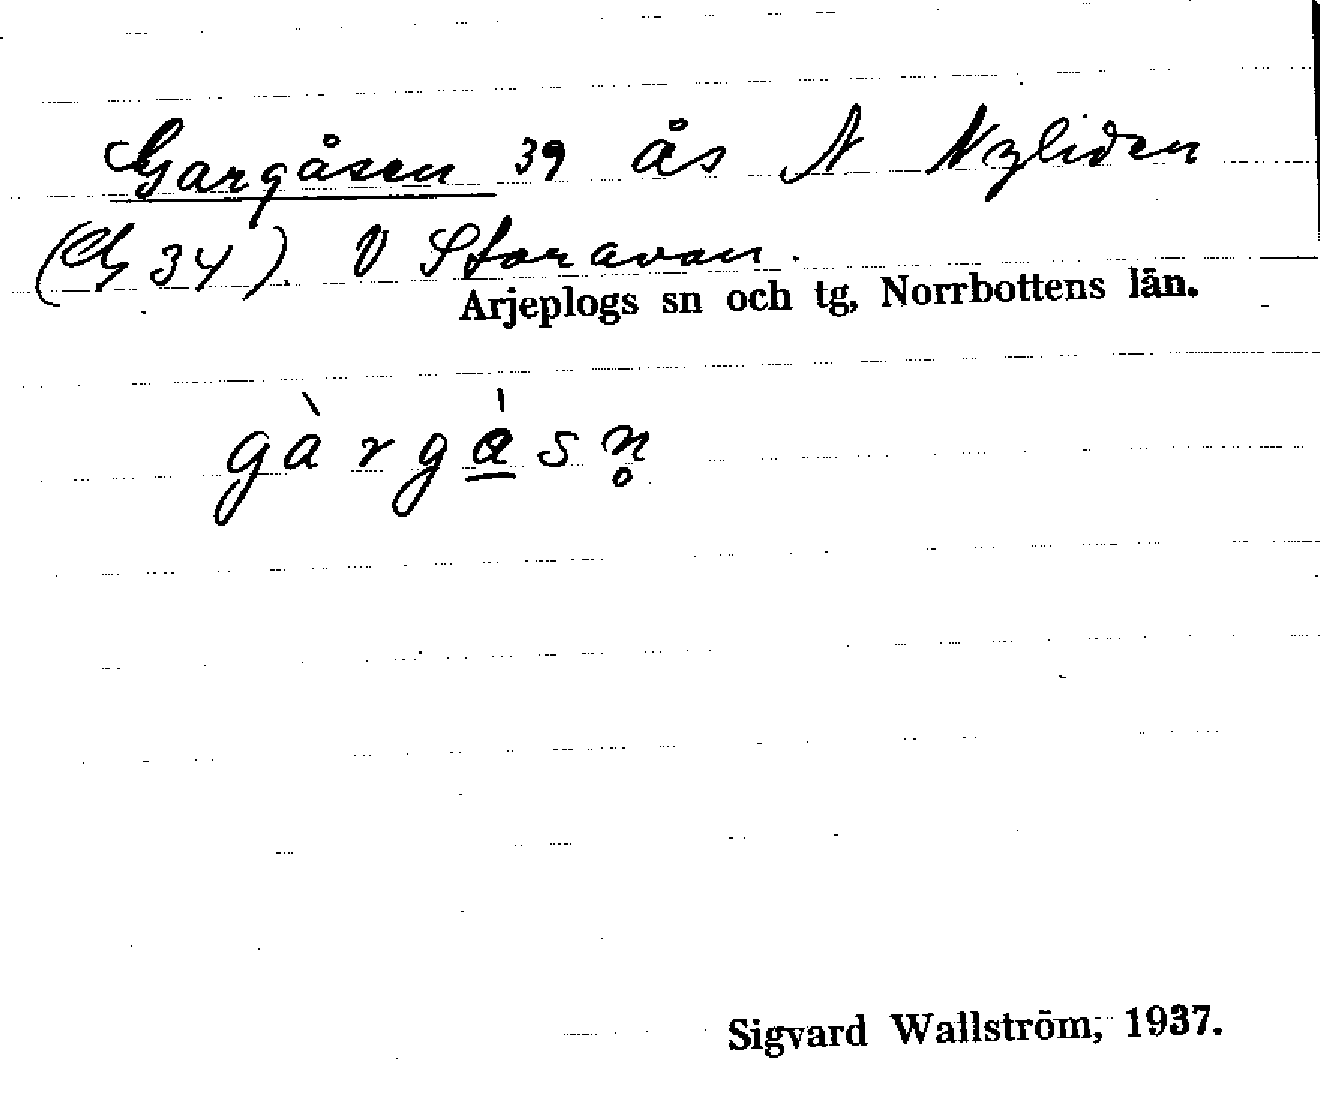 Gargåsen 39 ås N Nyliden
(G 34). V Storavan.
Arjeplogs sn och tg, Norrbottens län.
gàrgåsn̥
Sigvard Wallström, 1937.